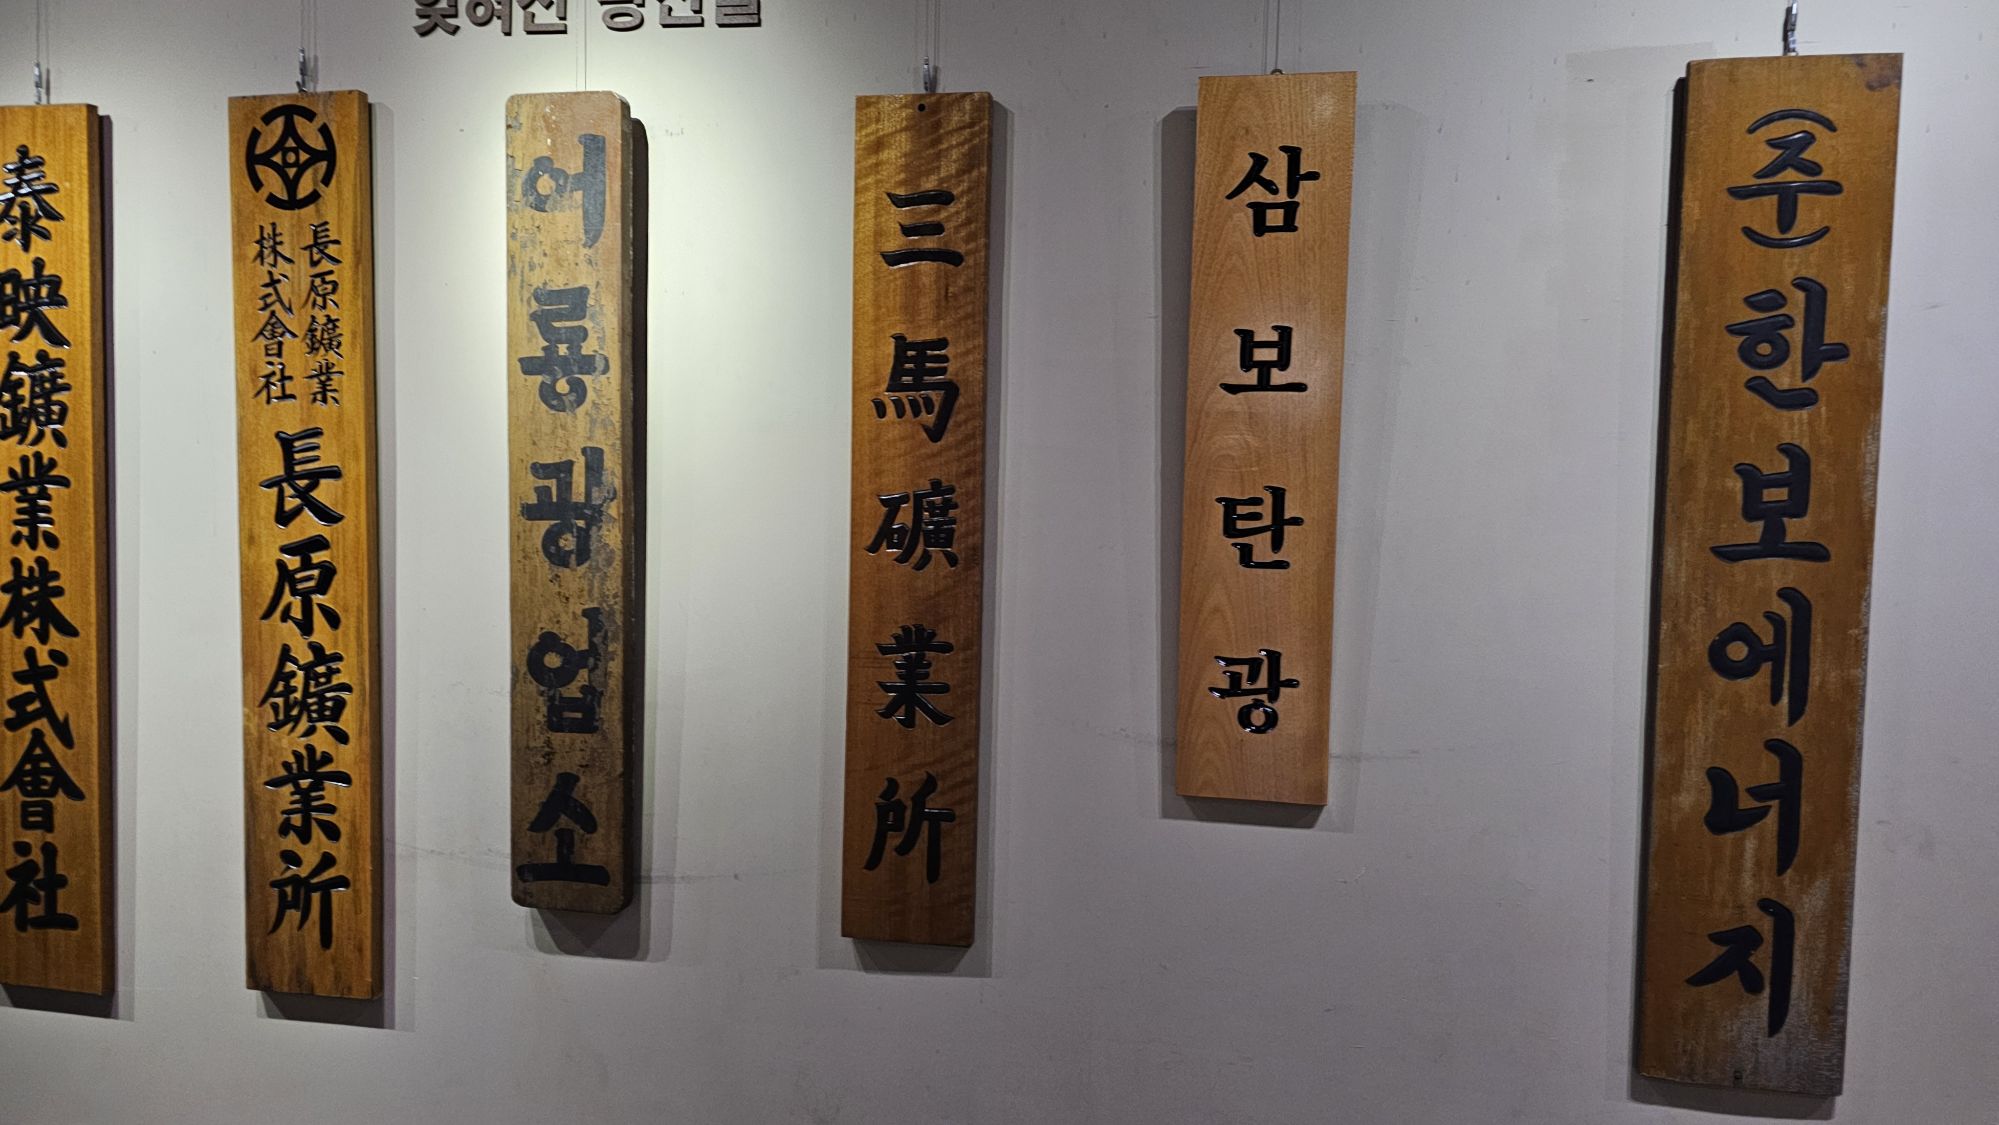 泰映鑛業株式會社
長原鑛業
株式會社
長原鑛業所
어룡광업소
三馬礦業所
삼보탄광
(주)한보에너지